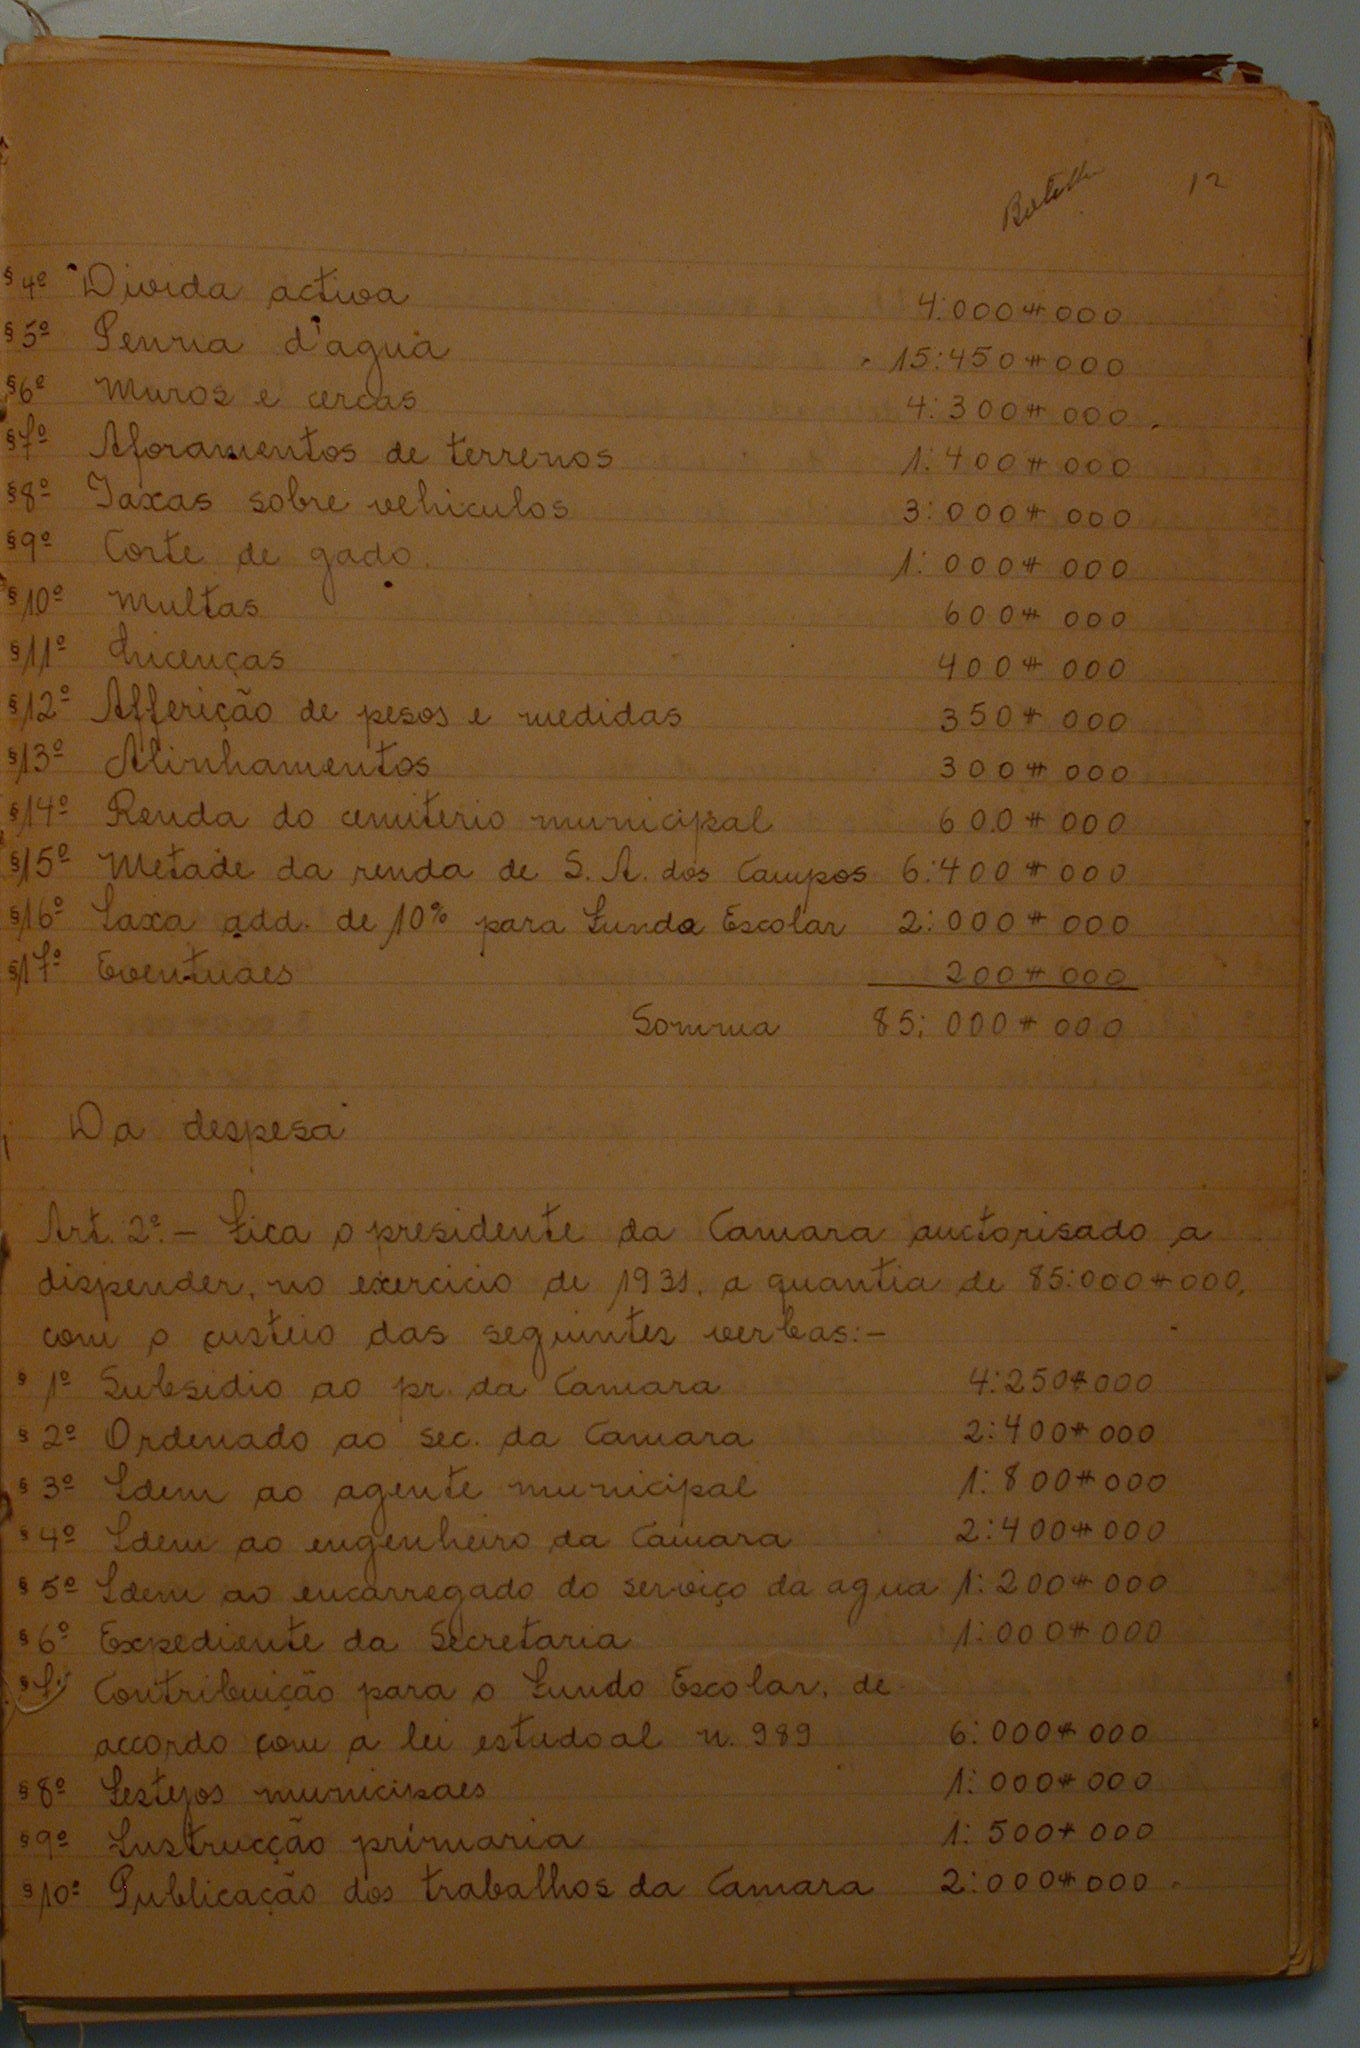 12
§ 4º Divida activa 4:000#000
§ 5º Penna d'agua 15:450#000
§ 6º Muros e cercas 4:300#000
§ 7º Aforamentos de terrenos 1:400#000
§ 8º Taxas sobre vehiculos 3:000#000
§ 9º Corte de gado 1:000#000
§ 10º Multas 600#000
§ 11º Licenças 400#000
§ 12º Afferição de pesos e medidas 350#000
§ 13º Alinhamentos 300#000
§ 14º Renda do cemiterio municipal 600#000
§ 15º Metade da renda de S. A. dos Campos 6:400#000
§ 16º Taxa add. de 10% para Fundo Escolar 2:000#000
§ 17º Eventuaes 200#000
Somma 85:000#000
Da despesa
Art. 2º.- Fica o presidente da Camara auctorisado a
dispender, no exercicio de 1931, a quantia de 85:000#000,
com o custeio das seguintes verbas:-
§ 1º Subsidio ao pr. da Camara 4:250#000
§ 2º Ordenado ao sec. da Camara 2:400#000
§ 3º Idem ao agente municipal 1:800#000
§ 4º Idem ao engenheiro da Camara 2:400#000
§ 5º Idem ao encarregado do serviço da agua 1:200#000
§ 6º Expediente da Secretaria 1:000#000
§ 7º Contribuição para o Fundo Escolar, de
accordo com a lei estadoal n. 989 6:000#000
§ 8º Festejos municipaes 1:000#000
§ 9º Instrucção primaria 1:500#000
§ 10º Publicação dos trabalhos da Camara 2:000#000